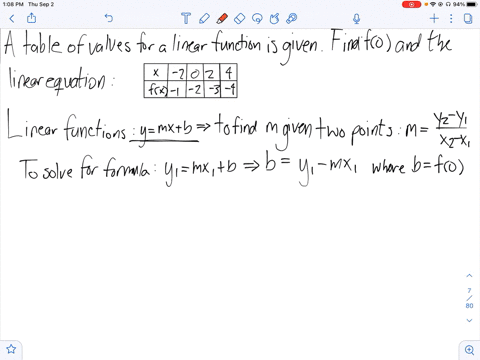 1:08 PM Thu Sep 2
94%
A table of values for a linear function is given. Find f(0) and the
linear equation:
x -2 0 2 4
f(x) -1 -2 -3 -4
Linear functions: y=mx+b ⇒ to find m given two points: m = y₂-y₁ / x₂-x₁
To solve for formula: y₁=mx₁+b ⇒ b= y₁-mx₁ where b=f(0)
7
/
80